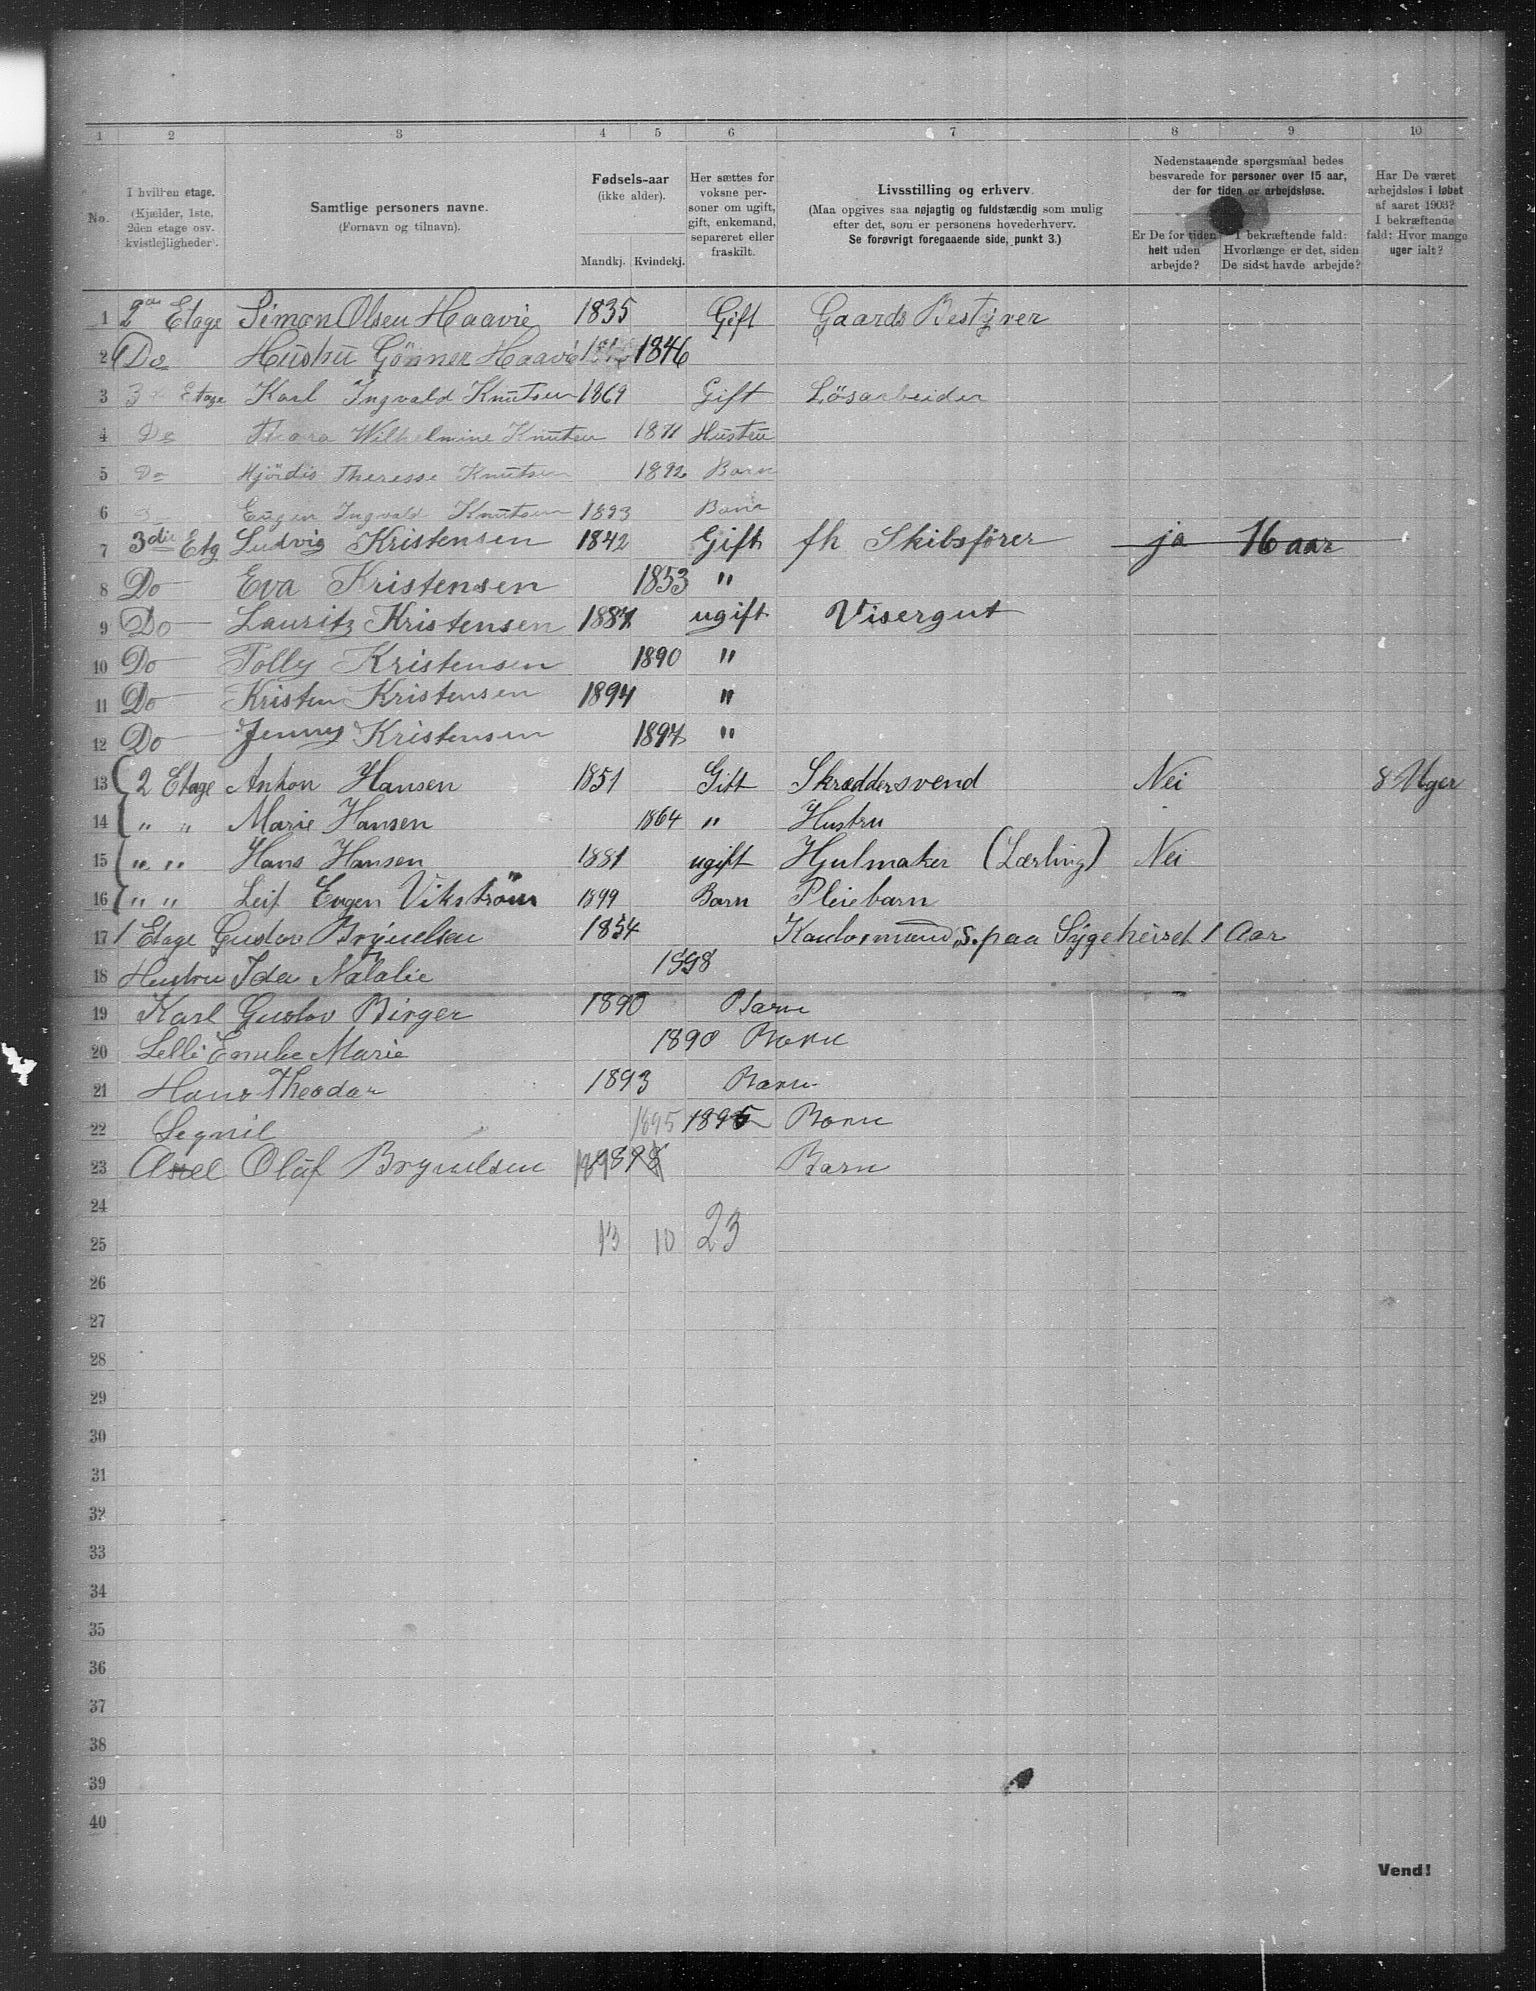 1 2 3 4 5 6 7 8 9 10
No.
I hvilken etage.
(Kjælder, 1ste,
2den etage osv.
kvistlejligheder).
Samtlige personers navne.
(Fornavn og tilnavn).
Fødsels-aar
(ikke alder).
Mandkj. Kvindekj.
Her sættes for
voksne per-
soner om ugift,
gift, enkemand,
separeret eller
fraskilt.
Livsstilling og erhverv.
(Maa opgives saa nøjagtig og fuldstændig som mulig
efter det, som er personens hovederhverv.
Se forøvrigt foregaaende side, punkt 3.)
Nedenstaaende spørgsmaal bedes
besvarede for personer over 15 aar,
der for tiden er arbejdsløse.
Er De for tiden
helt uden
arbejde?
I bekræftende fald:
Hvorlænge er det, siden
De sidst havde arbejde?
Har De været
arbejdsløs i løbet
af aaret 1903?
I bekræftende
fald: Hvor mange
uger ialt?
1 2den Etage Simon Olsen Haavie 1835 Gift Gaards Bestyrer
2 Do Hustru Gönner Haavi 1846
3 3 Etage Karl Ingvald Knutsen 1869 Gift Lösarbeider
4 Do Thora Wilhelmine Knutsen 1871 Hustru
5 Do Hjördis Theresse Knutsen 1892 Barn
6 Eugen Ingvald Knutsen 1893 Barn
7 3die Etg Ludvig Kristensen 1842 Gift fh Skibsfører ja 16 aar
8 Do Eva Kristensen 1853 "
9 Do Lauritz Kristensen 1887 ugift Visergut
10 Do Tolly Kristensen 1890 "
11 Do Kristen Kristensen 1894 "
12 Do Jenny Kristensen 1897 "
13 2 Etage Anton Hansen 1851 Gift Skræddersvend Nei 8 Uger
14 " " Marie Hansen 1864 " Hustru
15 " " Hans Hansen 1881 ugift Hjulmaker (Lærling) Nei
16 " " Leif Eugen Vikström 1899 Barn Pleiebarn
17 1 Etage Gustav Brynelsen 1854 paa Sygehuset 1 Aar
18 Hustru Ida Natalie
19 Karl Gustov Birger 1890 Barn
20 Marie 1890 Barn
21 Hans Theodor 1893 Barn
22 1895 1895 Barn
23 Olaf Brynelsen Barn
24
25 13 10 23
26
27
28
29
30
31
32
33
34
35
36
37
38
39
40
Vend!